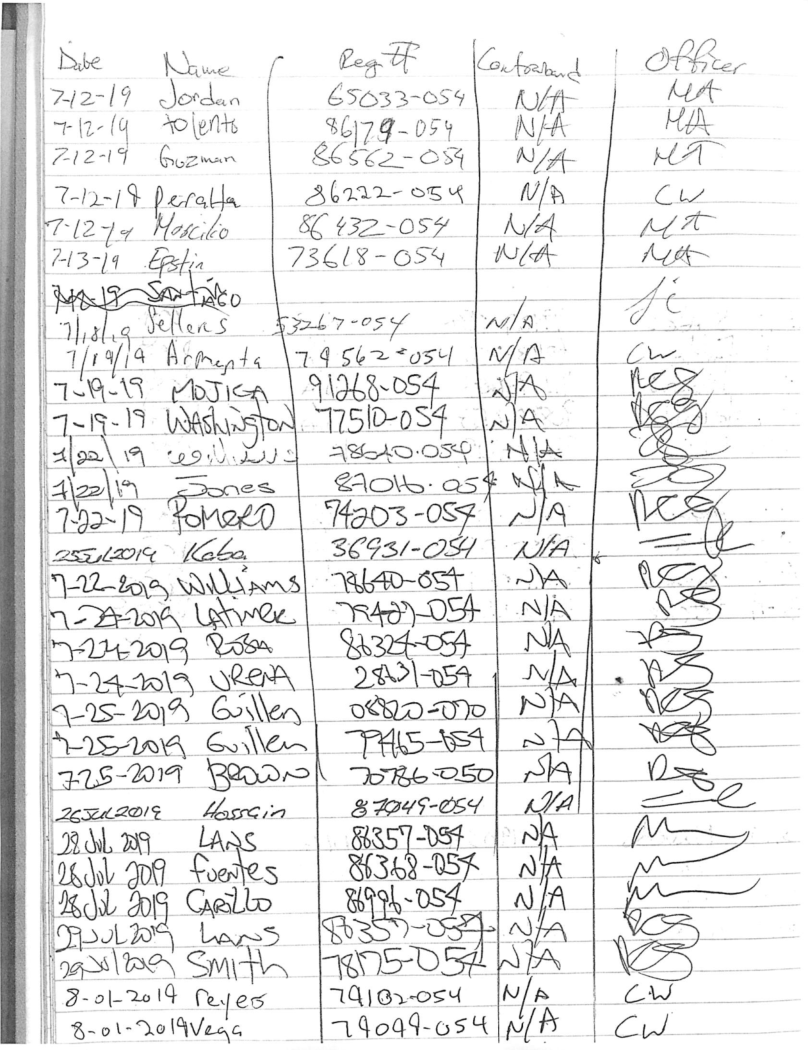 Date Name Reg # Contraband Officer
7-12-19 Jordan 65033-054 N/A MA
7-12-19 tolento 86179-054 N/A MA
7-12-19 Guzman 86562-054 N/A MT
7-12-19 Peralta 86222-054 N/A CW
7-12-19 Moscilio 86432-054 N/A MT
7-13-19 Epstin 73618-054 N/A MA
SANTIAGO
7/18/19 Sellers 53267-054 N/A
7/19/19 Armenta 79562-054 N/A CW
7-19-19 MOJICA 91268-054 N/A
7-19-19 WASHINGTON 77510-054 N/A
7/22/19 78640-054 N/A
7/22/19 Jones 87016-054 N/A
7-22-19 ROMERO 74203-054 N/A
25JUL2019 Kaba 36931-054 N/A
7-22-2019 WILLIAMS 78640-054 N/A
7-24-2019 LATIMER 79427-054 N/A
7-24-2019 ROSA 86324-054 N/A
7-24-2019 URENA 28631-054 N/A
7-25-2019 Guillen 08820-070 N/A
7-25-2019 Guillen 79465-054 N/A
7-25-2019 BROWN 70786-050 N/A
26JUL2019 Hossain 87049-054 N/A
28 JUL 2019 LANS 86357-054 N/A
28 JUL 2019 fuentes 86368-054 N/A
28 JUL 2019 CARILLO 86996-054 N/A
29 JUL 2019 LANS 86357-054 N/A
29 Jul 2019 SMITH 78175-054 N/A
8-01-2019 reyes 79102-054 N/A CW
8-01-2019 Vega 79099-054 N/A CW